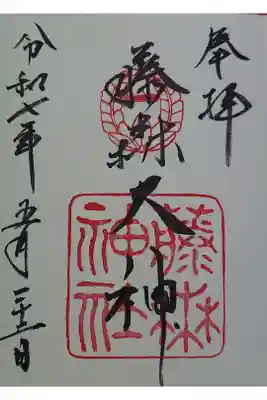 奉拝
藤森大神
藤森
神社
令和七年五月